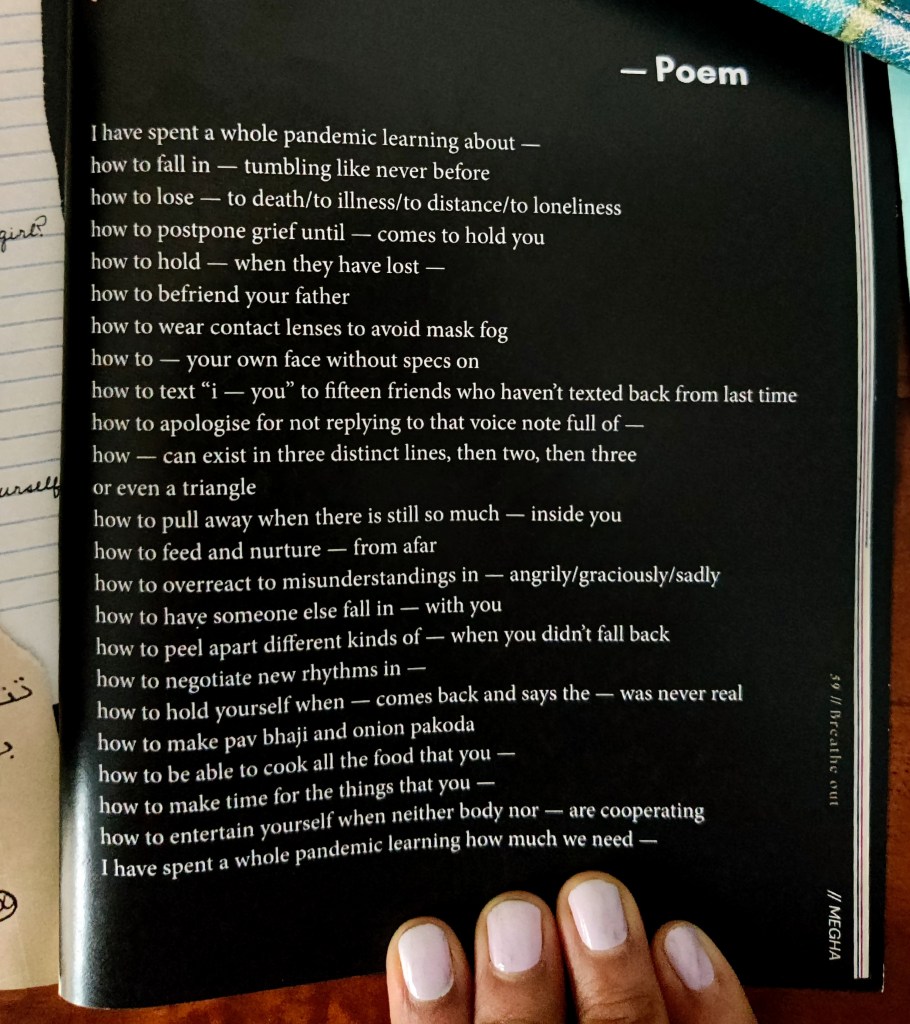 — Poem
I have spent a whole pandemic learning about —
how to fall in — tumbling like never before
how to lose — to death/to illness/to distance/to loneliness
how to postpone grief until — comes to hold you
how to hold — when they have lost —
how to befriend your father
how to wear contact lenses to avoid mask fog
how to — your own face without specs on
how to text “i — you” to fifteen friends who haven’t texted back from last time
how to apologise for not replying to that voice note full of —
how — can exist in three distinct lines, then two, then three
or even a triangle
how to pull away when there is still so much — inside you
how to feed and nurture — from afar
how to overreact to misunderstandings in — angrily/graciously/sadly
how to have someone else fall in — with you
how to peel apart different kinds of — when you didn’t fall back
how to negotiate new rhythms in —
how to hold yourself when — comes back and says the — was never real
how to make pav bhaji and onion pakoda
how to be able to cook all the food that you —
how to make time for the things that you —
how to entertain yourself when neither body nor — are cooperating
I have spent a whole pandemic learning how much we need —
39 // Breathe out
// MEGHA
girl?
urself